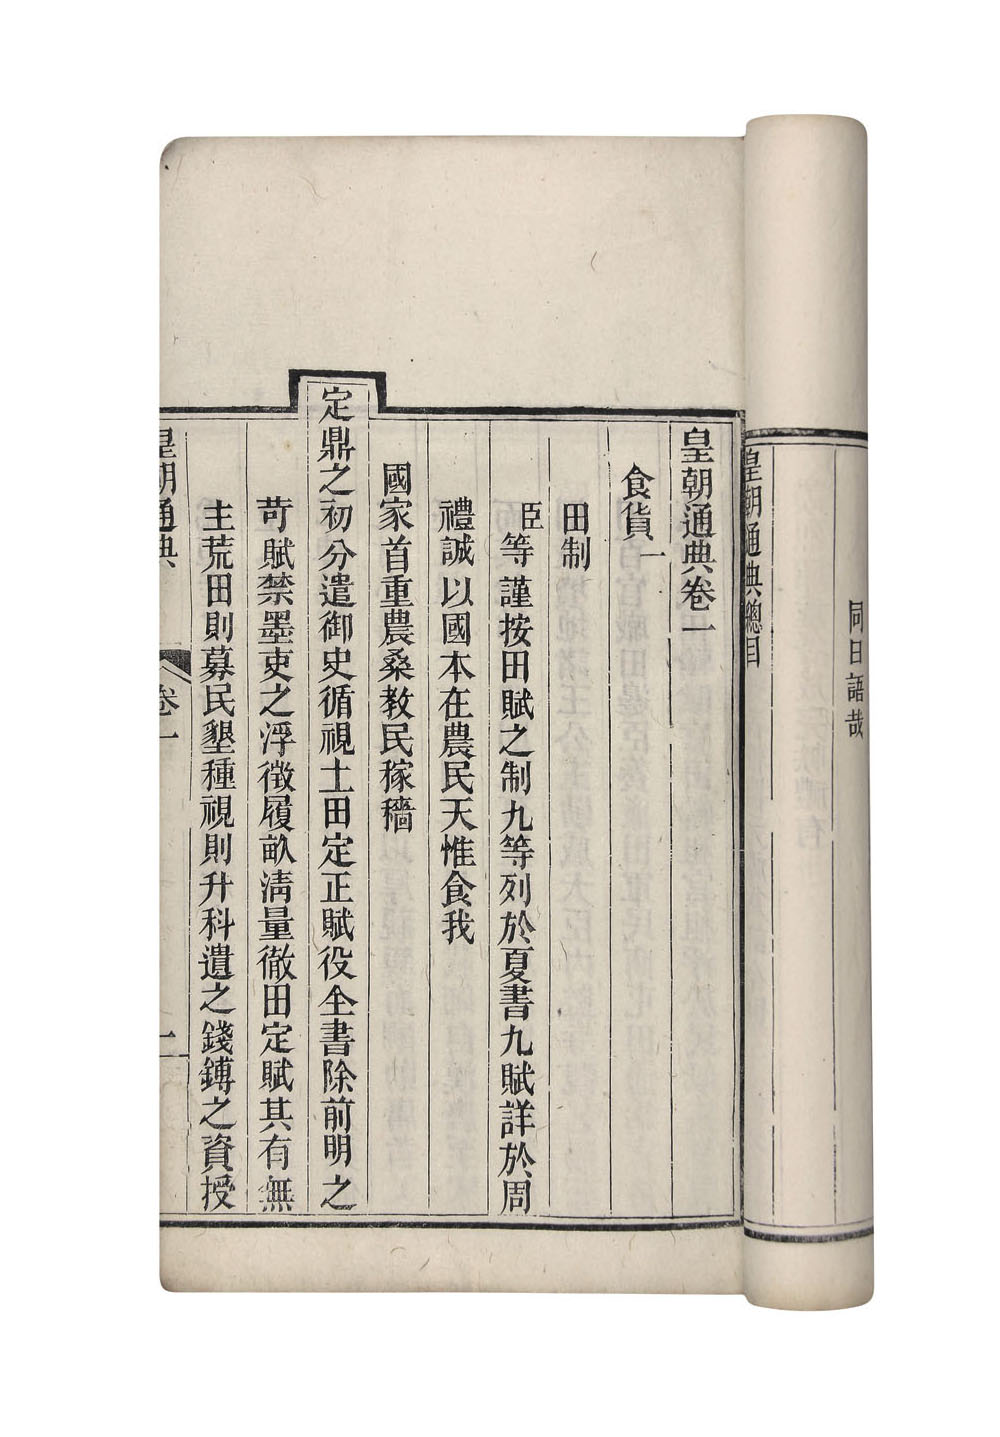 同日語哉
皇朝通典總目
皇朝通典卷一
食貨一
田制
臣等謹按田賦之制九等列於夏書九賦詳於周
禮誠以國本在農民天惟食我
國家首重農桑教民稼穡
定鼎之初分遣御史循視土田定正賦役全書除前明之
苛賦禁墨吏之浮徵履畝清量徹田定賦其有無
主荒田則募民墾種視則升科遺之錢鎛之資授
皇朝通典 卷一 一